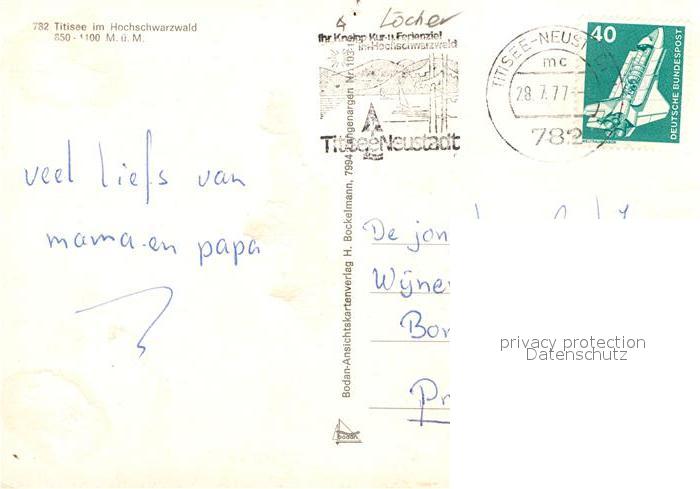 782 Titisee im Hochschwarzwald
850-1100 M. ü. M.
4 Löcher
Ihr Kneipp Kur-u. Ferienziel
im Hochschwarzwald
Titisee Neustadt
TITISEE-NEUS
mc
28.7.77
782
40
DEUTSCHE BUNDESPOST
veel liefs van
mama en papa
Bodan-Ansichtskartenverlag H. Bockelmann, 7994
bodan
De jon
Wijne
Bo
privacy protection
Datenschutz